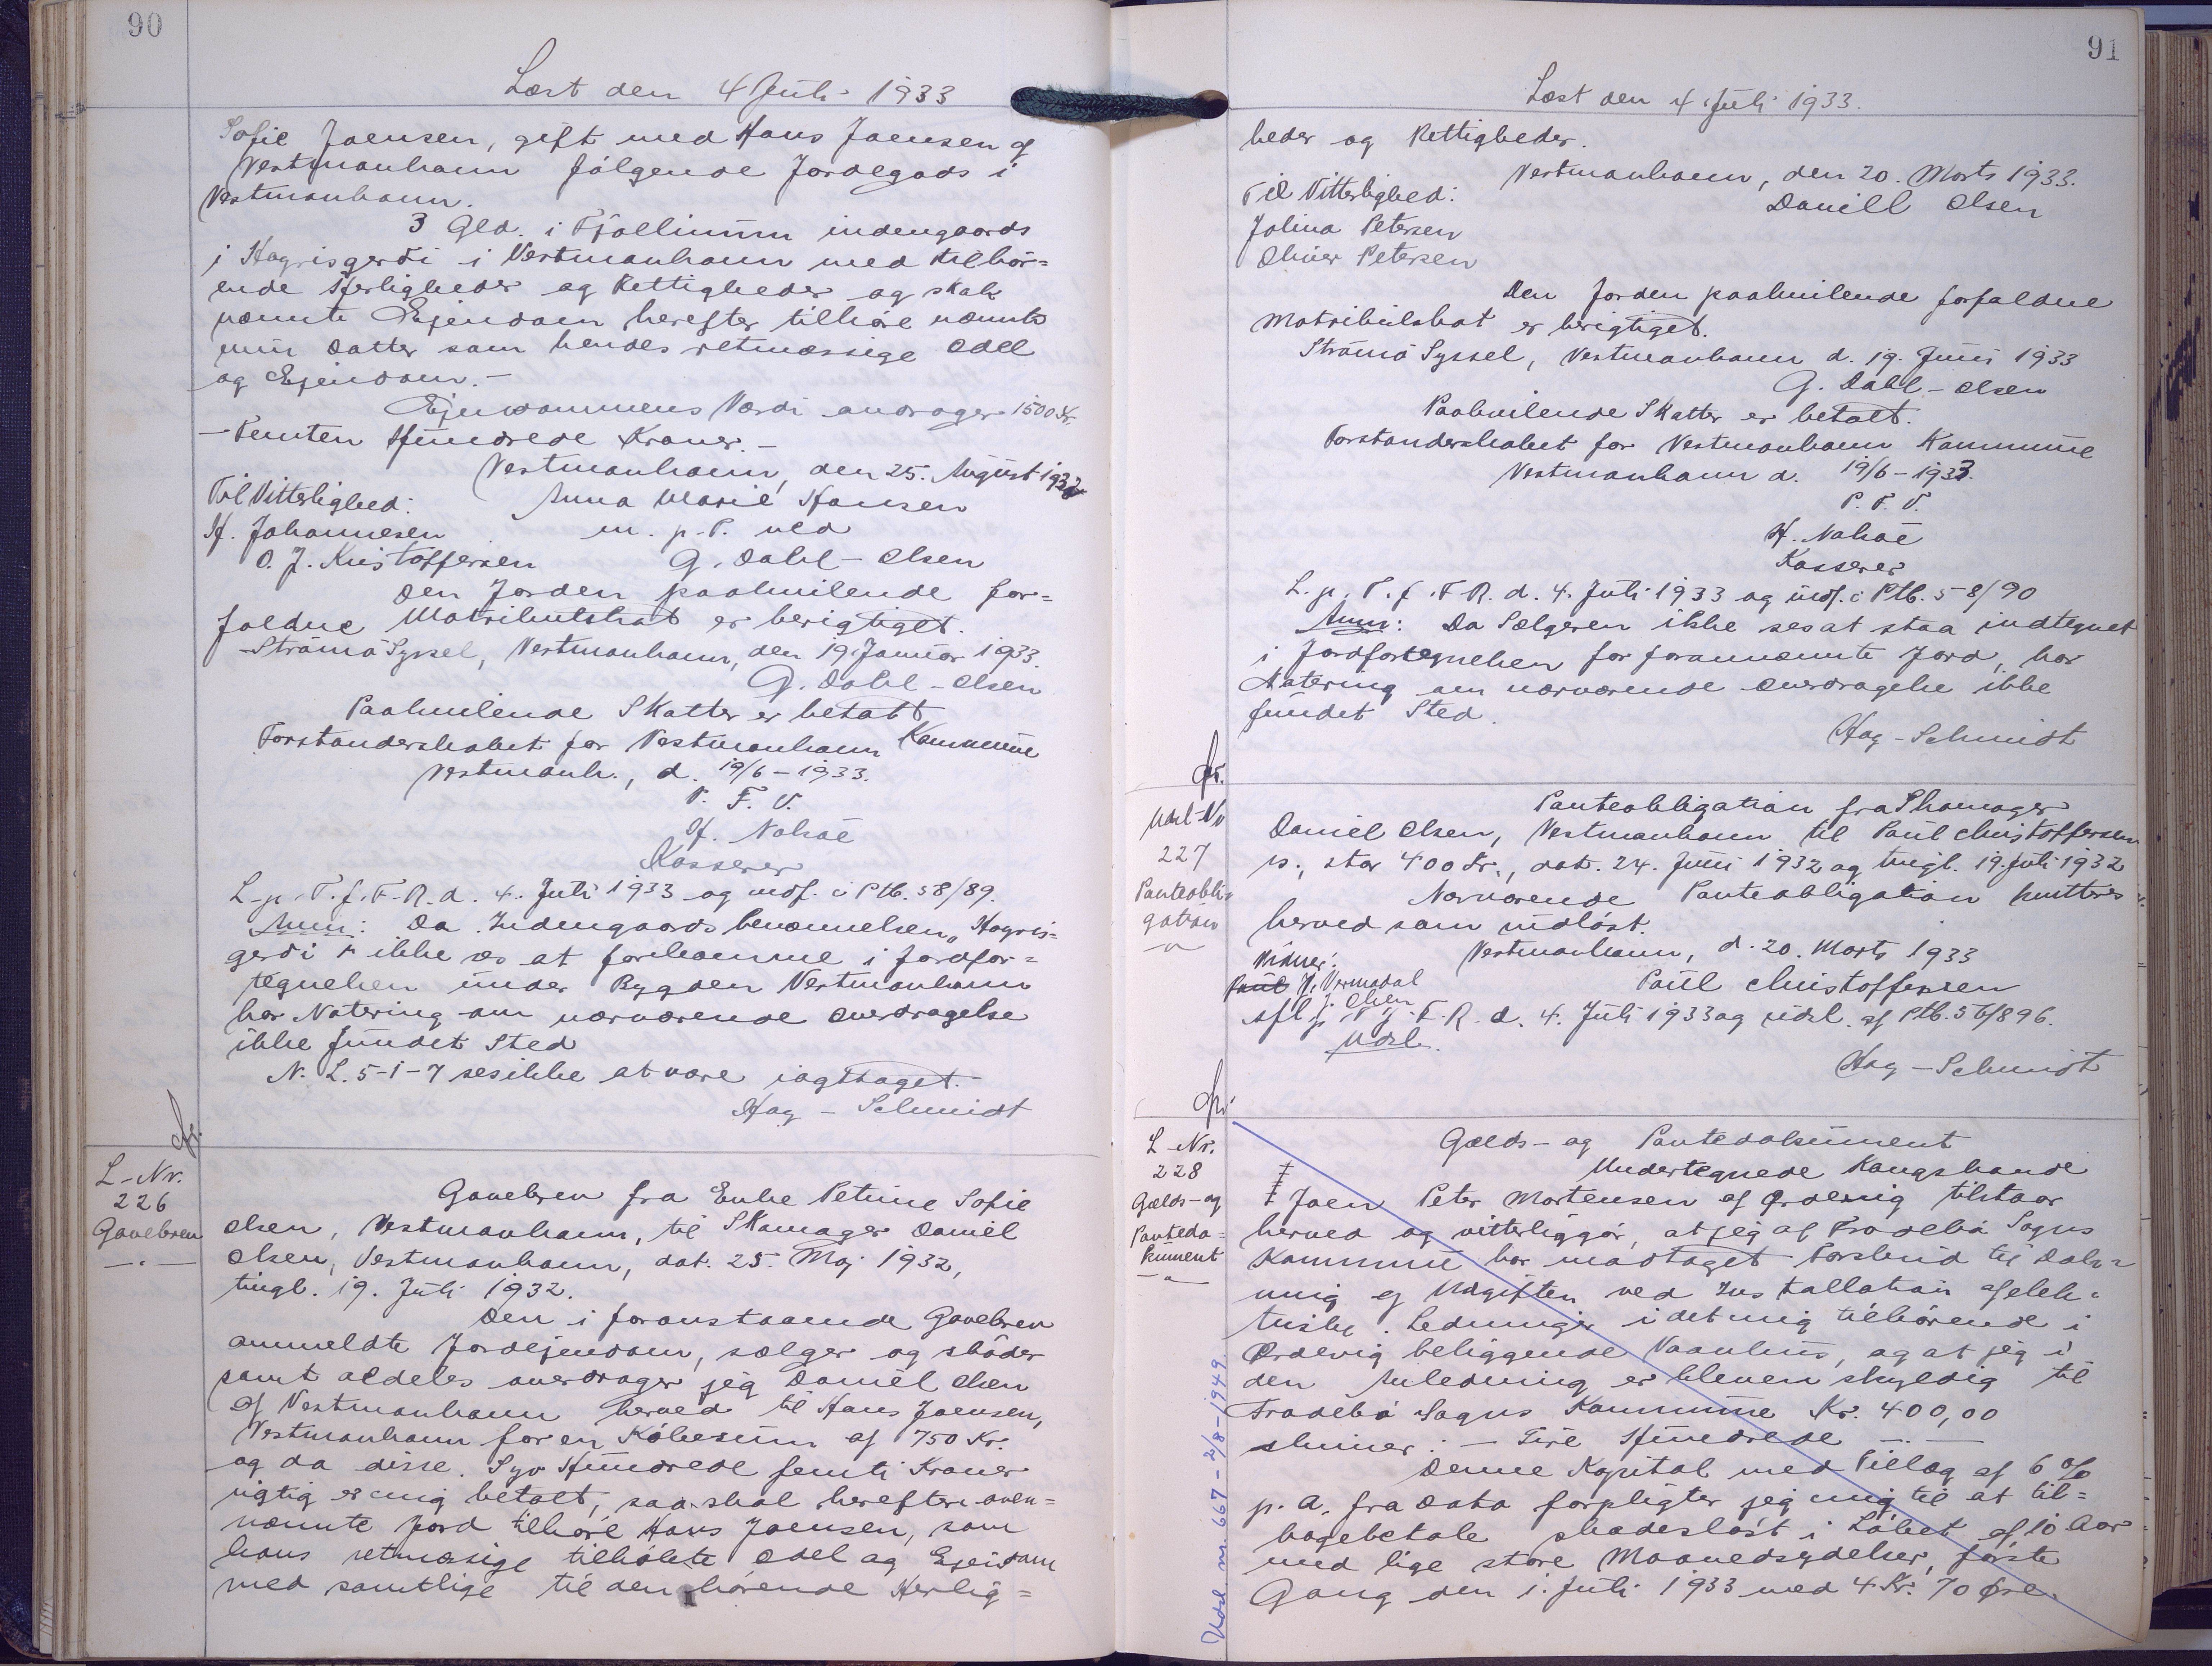 90
Læst den 4 Juli 1933
Sofie Joensen, gift med Hans Joensen af
Vestmanhavn følgende Jordegods i
Vestmanhavn.
3 Gld. i Fjøllinum indengaards
i Hagrisgerði i Vestmanhavn med tilhør=
ende Herligheder og Rettigheder og skal
nævnte Ejendom herefter tilhøre nævnte
min Datter som hendes retmæssige Odel
og Ejendom.-
Ejendommens Værdi andrager 1500 Kr.
- Femten Hundrede Kroner. -
Vestmanhavn, den 25. August 1932
Til Vitterlighed:
Anna Marie Hansen
H. Johannesen
m. p. P. ved
O. J. Kristoffersen
G. Dahl - Olsen
Den Jorden paahvilende for=
faldne Matrikulskat er berigtiget.
Strømø Syssel, Vestmanhavn, den 19. Januar 1933.
G. Dahl - Olsen
Paahvilende Skatter er betalt
Forstanderskabet for Vestmanhavn Kommune
Vestmanh., d. 19/6 - 1933.
P. F. V.
H. Nolsøe
Kasserer
L. p. T. f. F. R. d. 4. Juli 1933 og indf. i Ptb. 58/89.
Anm: Da Indengaardsbenævnelsen „Hagris=
gerði" ikke ses at forekomme i Jordfor=
tegnelsen under Bygden Vestmanhavn
har Notering om nærværende Overdragelse
ikke fundet Sted
N. L. 5-1-7 ses ikke at være iagttaget.
Hag - Schmidt
L-Nr.
226
Gavebrev
Gavebrev fra Enke Petrine Sofie
Olsen, Vestmanhavn, til Skomager Daniel
Olsen, Vestmanhavn, dat. 25. Maj 1932,
tingl. 19. Juli 1932.
Den i foranstaaende Gavebrev
ommeldte Jordejendom, sælger og skøder
samt aldeles overdrager jeg Daniel Olsen
af Vestmanhavn herved til Hans Joensen,
Vestmanhavn for en Købesum af 750 Kr.
og da disse Syv Hundrede femti Kroner
rigtig er mig betalt, saa skal herefter oven=
nævnte Jord tilhøre Hans Joensen, som
hans retmæssige tilkøbte Odel og Ejendom
med samtlige til den hørende Herlig=
91
Læst den 4 Juli 1933.
heder og Rettigheder.
Vestmanhavn, den 20. Marts 1933.
Til Vitterlighed:
Daniel Olsen
Jolina Petersen
Oliver Petersen
Den Jorden paahvilende forfaldne
Matrikulskat er berigtiget.
Strømø Syssel, Vestmanhavn d. 19. Juni 1933
G. Dahl - Olsen
Paahvilende Skatter er betalt.
Forstanderskabet for Vestmanhavn Kommune
Vestmanhavn d. 19/6 - 1933.
P. F. V.
H. Nolsøe
Kasserer
L. p. T. f. F. R. d. 4. Juli 1933 og indf. i Ptb. 58/90
Anm: Da Sælgeren ikke ses at staa indtegnet
i Jordfortegnelsen for forannævnte Jord, har
Notering om nærværende Overdragelse ikke
fundet Sted.
Hag - Schmidt
Udsl-Nr
227
Panteobli=
gation
Panteobligation fra Skomager
Daniel Olsen, Vestmanhavn til Paul Christoffersen
is., stor 400 Kr., dat. 24. Juni 1932 og tingl. 19. Juli 1932
Nærværende Panteobligation kvitteres
herved som indløst.
Vestmanhavn, d. 20. Marts 1933
Vidner:
Paul V. Vermadal
Paul Christoffersen
J. Olsen
Afl p T f. F. R. d. 4. Juli 1933 og udsl. af Ptb. 56/896.
Udsl.
Hag - Schmidt
L-Nr.
228
Gælds- og
Pantedo=
kument
Gælds- og Pantedokument
Undertegnede Kongsbonde
Joen Peter Mortensen af Ørdevig tilstaar
herved og vitterliggør, at jeg af Frodebø Sogns
Kommune har modtaget Forskud til Dæk=
ning af Udgiften ved Installation af elek=
triske Ledninger i det mig tilhørende i
Ørdevig beliggende Vaanhus, og at jeg i
den Anledning er bleven skyldig til
Frodebø Sogns Kommune Kr. 400,00
skriver: - Fire Hundrede - " -
Denne Kapital med Tillæg af 6 %
p. a. fra Dato forpligter jeg mig til at til=
bagebetale skadesløst i Løbet af 10 Aar
med lige store Maanedsydelser, første
Gang den 1. Juli 1933 med 4 Kr. 70 Øre.
Udsl. nr. 667 - 2/8 - 1949.